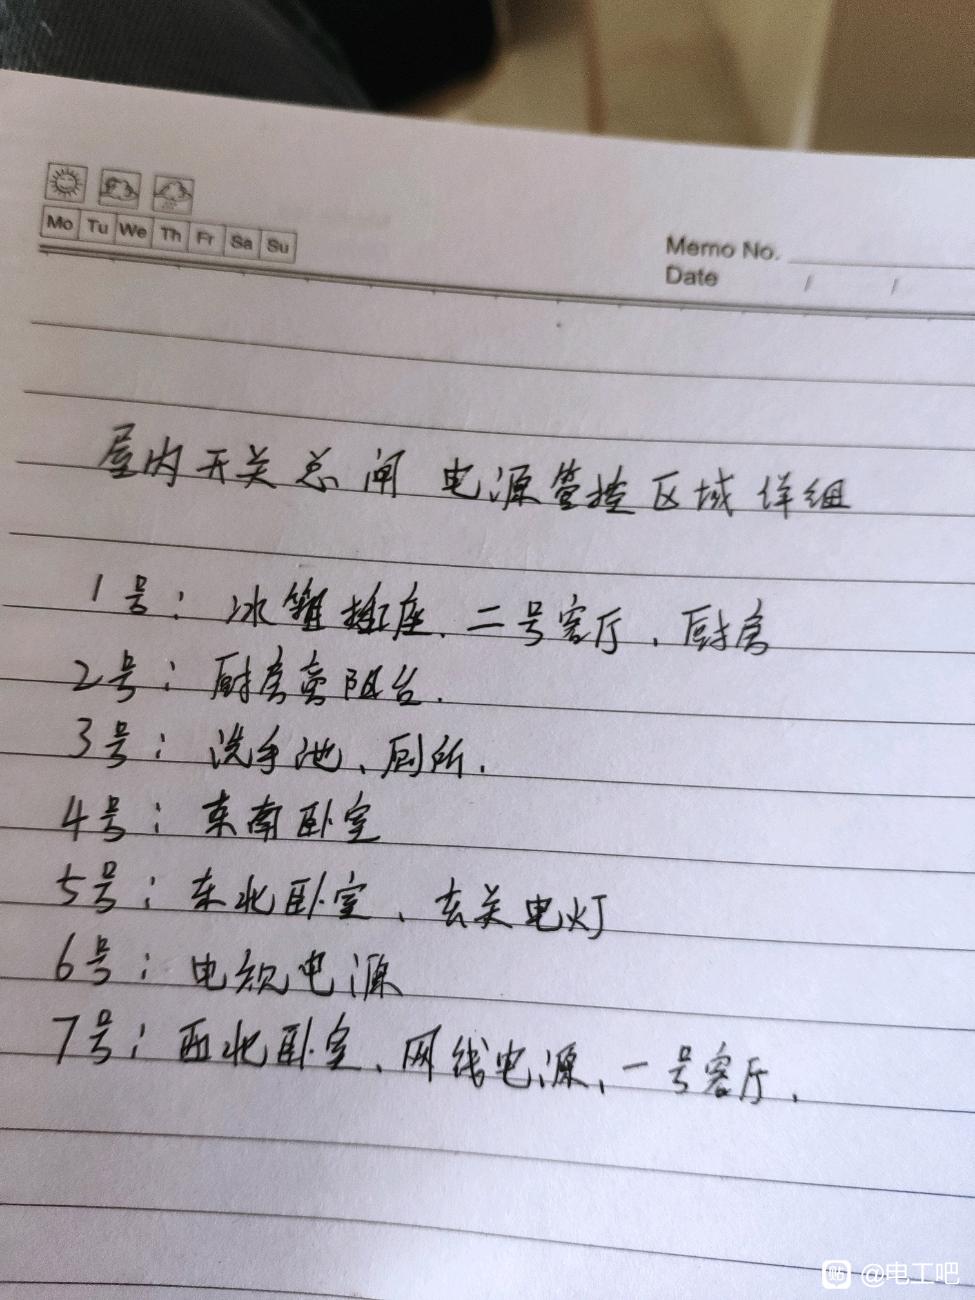 Mo Tu We Th Fr Sa Su
Memo No.
Date / /
屋内开关总闸 电源管控区域详细
1号：冰箱插座、二号客厅、厨房
2号：厨房阳台.
3号：洗手池、厕所.
4号：东南卧室
5号：东北卧室、玄关电灯
6号：电视电源
7号：西北卧室、网线电源、一号客厅.
贴 @电工吧